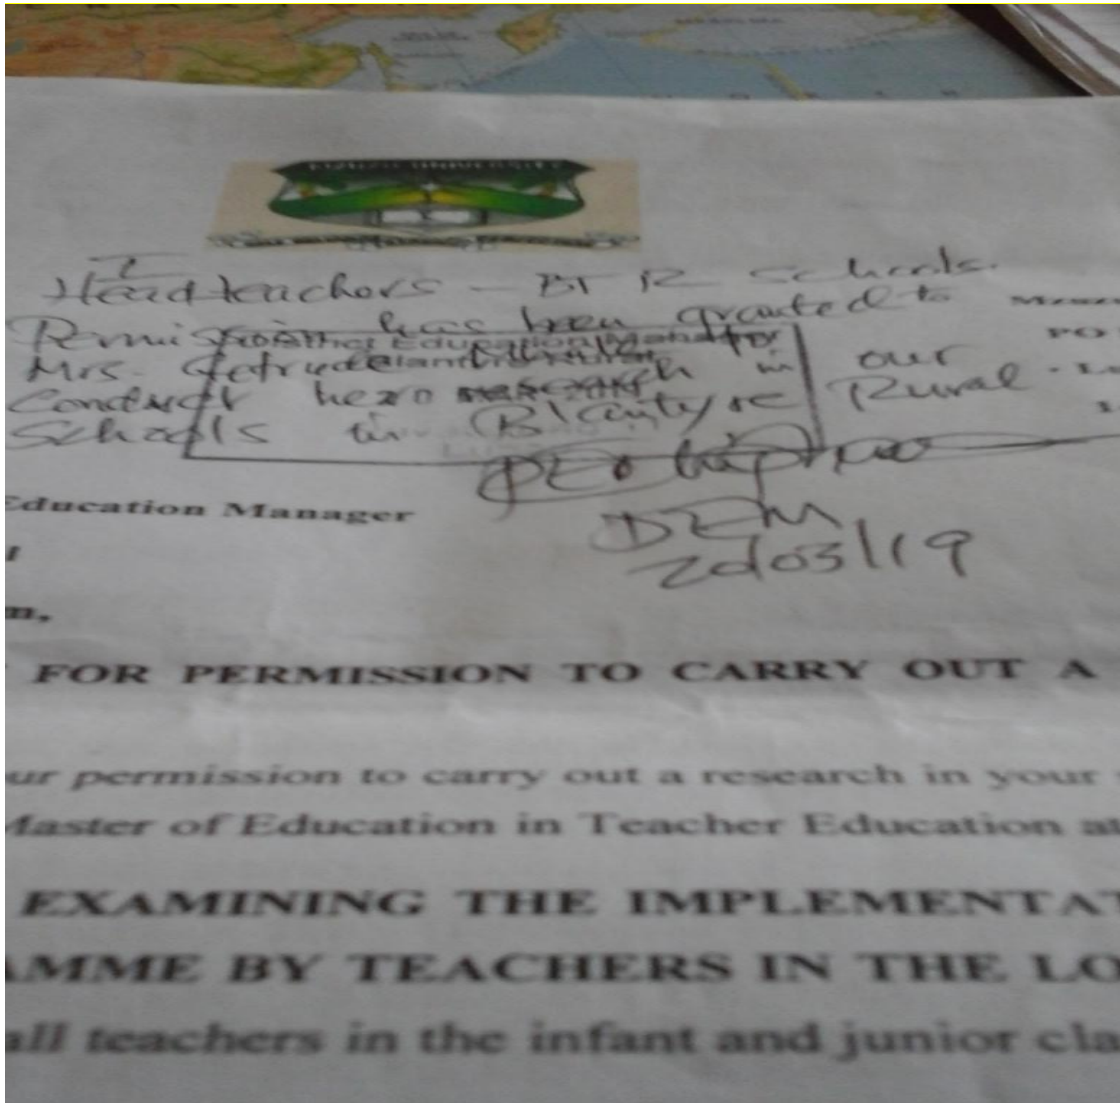 MZUZU UNIVERSITY
Headteachers - BT R Schools.
Permission has been granted to
Mrs. in our
Conduct her research
Schools in Blantyre Rural
PO
Education Manager
DEM
20/03/19
m,
FOR PERMISSION TO CARRY OUT A
ur permission to carry out a research in your
Master of Education in Teacher Education at
EXAMINING THE IMPLEMENTAT
AMME BY TEACHERS IN THE LO
all teachers in the infant and junior cla